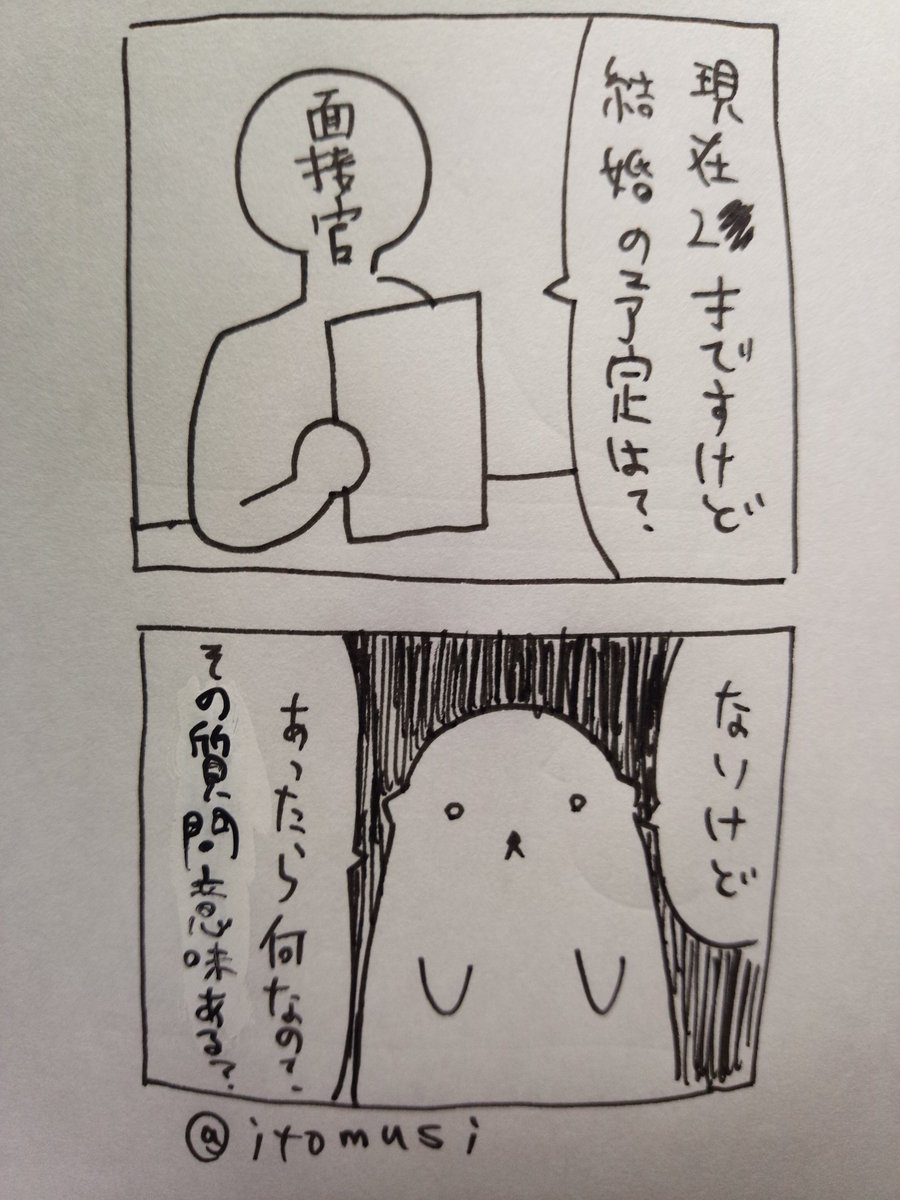 現在2 才ですけど
結婚の予定は?
面接官
ないけど
あったら何なの?
その質問意味ある?
@itomusi